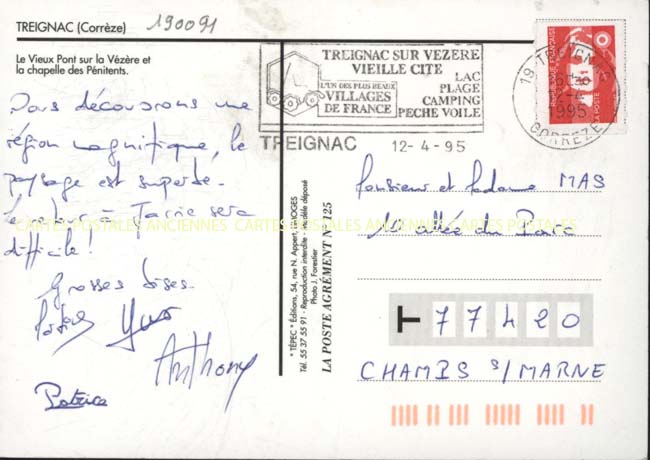 TREIGNAC (Corrèze)
190091
Le Vieux Pont sur la Vézère et
la chapelle des Pénitents.
TREIGNAC SUR VEZERE
VIEILLE CITE
L'UN DES PLUS BEAUX
VILLAGES
DE FRANCE
LAC
PLAGE
CAMPING
PECHE VOILE
TREIGNAC 12-4-95
19 TREIGNAC
1995
CORREZE
REPUBLIQUE FRANÇAISE
LA POSTE
Nous découvrons une
région magnifique, le
paysage est superbe.
Le retour à Jarrie sera
difficile!
Grosses bises.
Yves
Anthony
Patrice
* TÉPEC * Éditions, 54, rue N. Appert, LIMOGES
Tél. 55 37 55 91 - Reproduction interdite - Modèle déposé
Photo J. Forestier
LA POSTE AGRÉMENT N° 125
Monsieur et Madame MAS
allée du Parc
77420
CHAMPS s/ MARNE
CARTES POSTALES ANCIENNES CARTES POSTALES ANCIENNES CARTES POSTALES